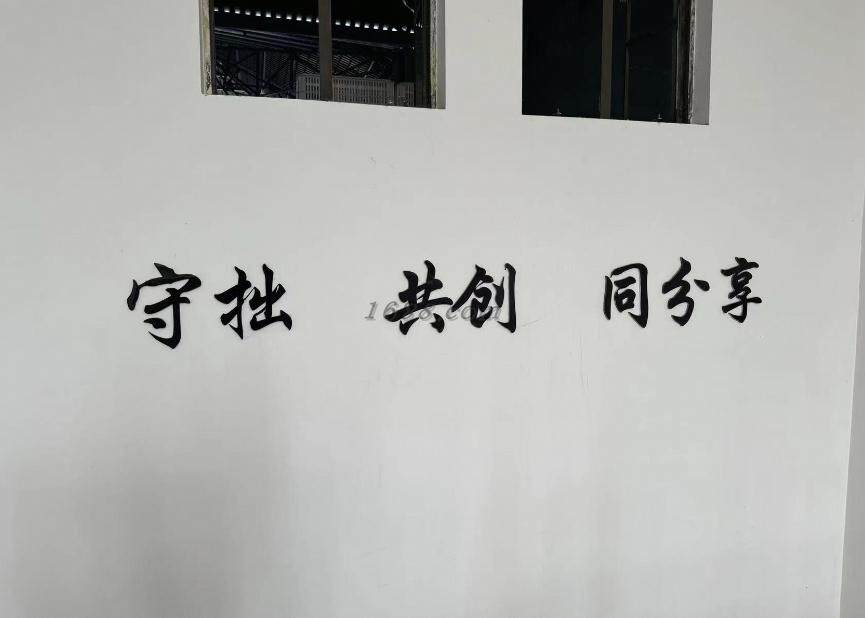 守拙 共创 同分享
1688.com